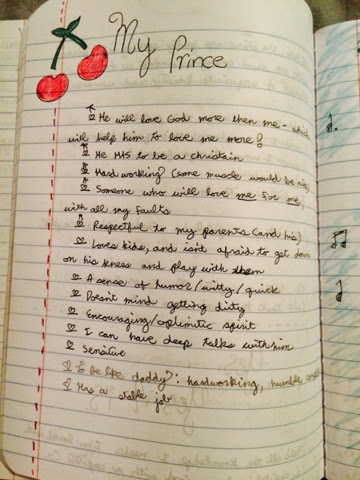 My
Prince
He will love God more then me - which
will help him to love me more!
He HAS to be a christain
Hard working? (some muscle would be nice)
Someone who will love me for me,
with all my faults
Respectful to my parents (and his)
Loves kids, and isn't afraid to get down
on his knees and play with them
A sense of humor/witty/quick
Doesn't mind getting dirty
Encouraging/optimistic spirit
I can have deep talks with him
Sensative
To be like daddy: hardworking, humble
Has a stable job